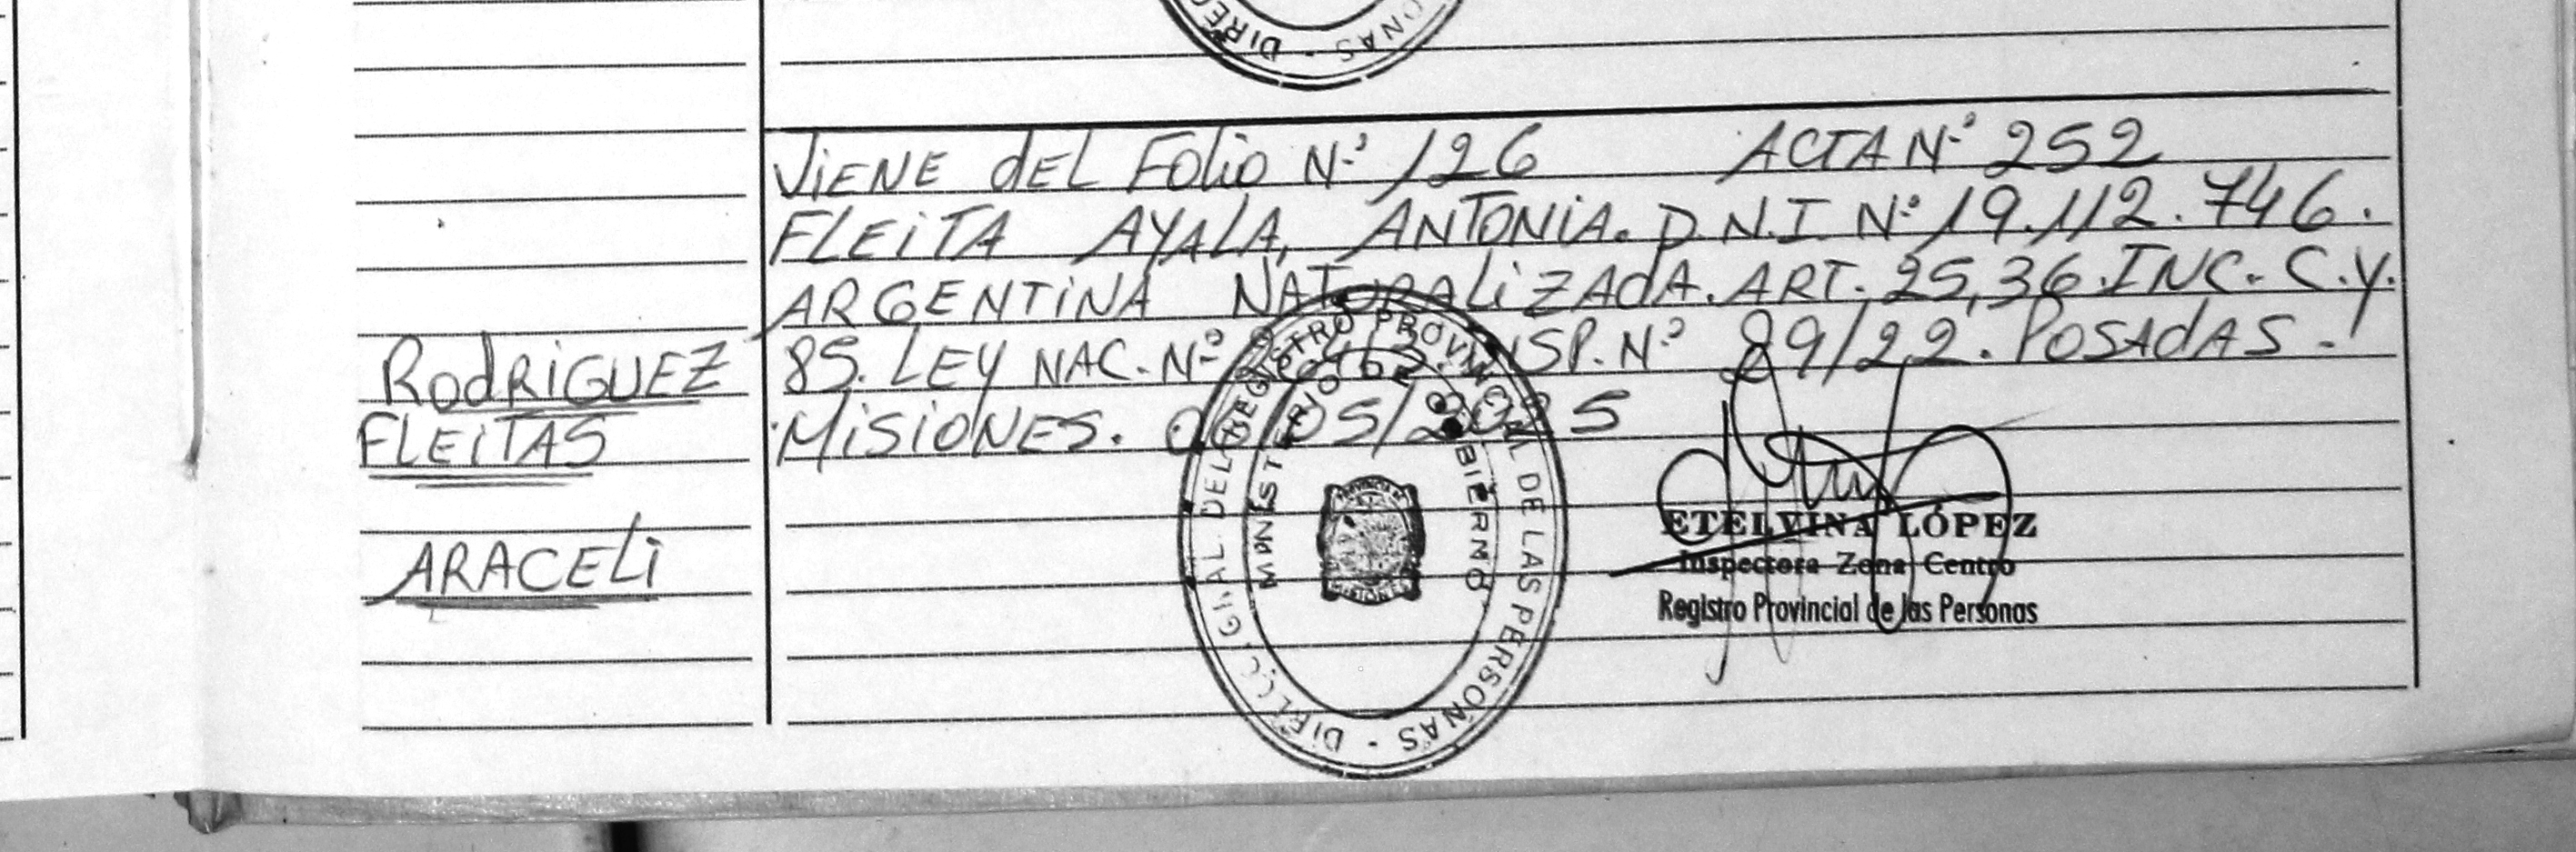 VIENE dEL FOLIO Nº 126 ACTA Nº 252
FLEITA AYALA, ANTONIA. D.N.I. Nº 19.112.746.
ARGENTINA NATURALIZADA. ART. 25,36. INC. C. Y.
85. LEY NAC. Nº 26413. DISP. Nº 89/22. POSADAS.-
MISIONES. 06/05/2025
RODRIGUEZ
FLEITAS
ARACELI
MINISTERIO GOBIERNO
DEL REGISTRO PROVINCIAL DE LAS PERSONAS
PROVINCIA DE
MISIONES
ETELVINA LÓPEZ
Inspectora Zona Centro
Registro Provincial de las Personas
DIREC
ONAS